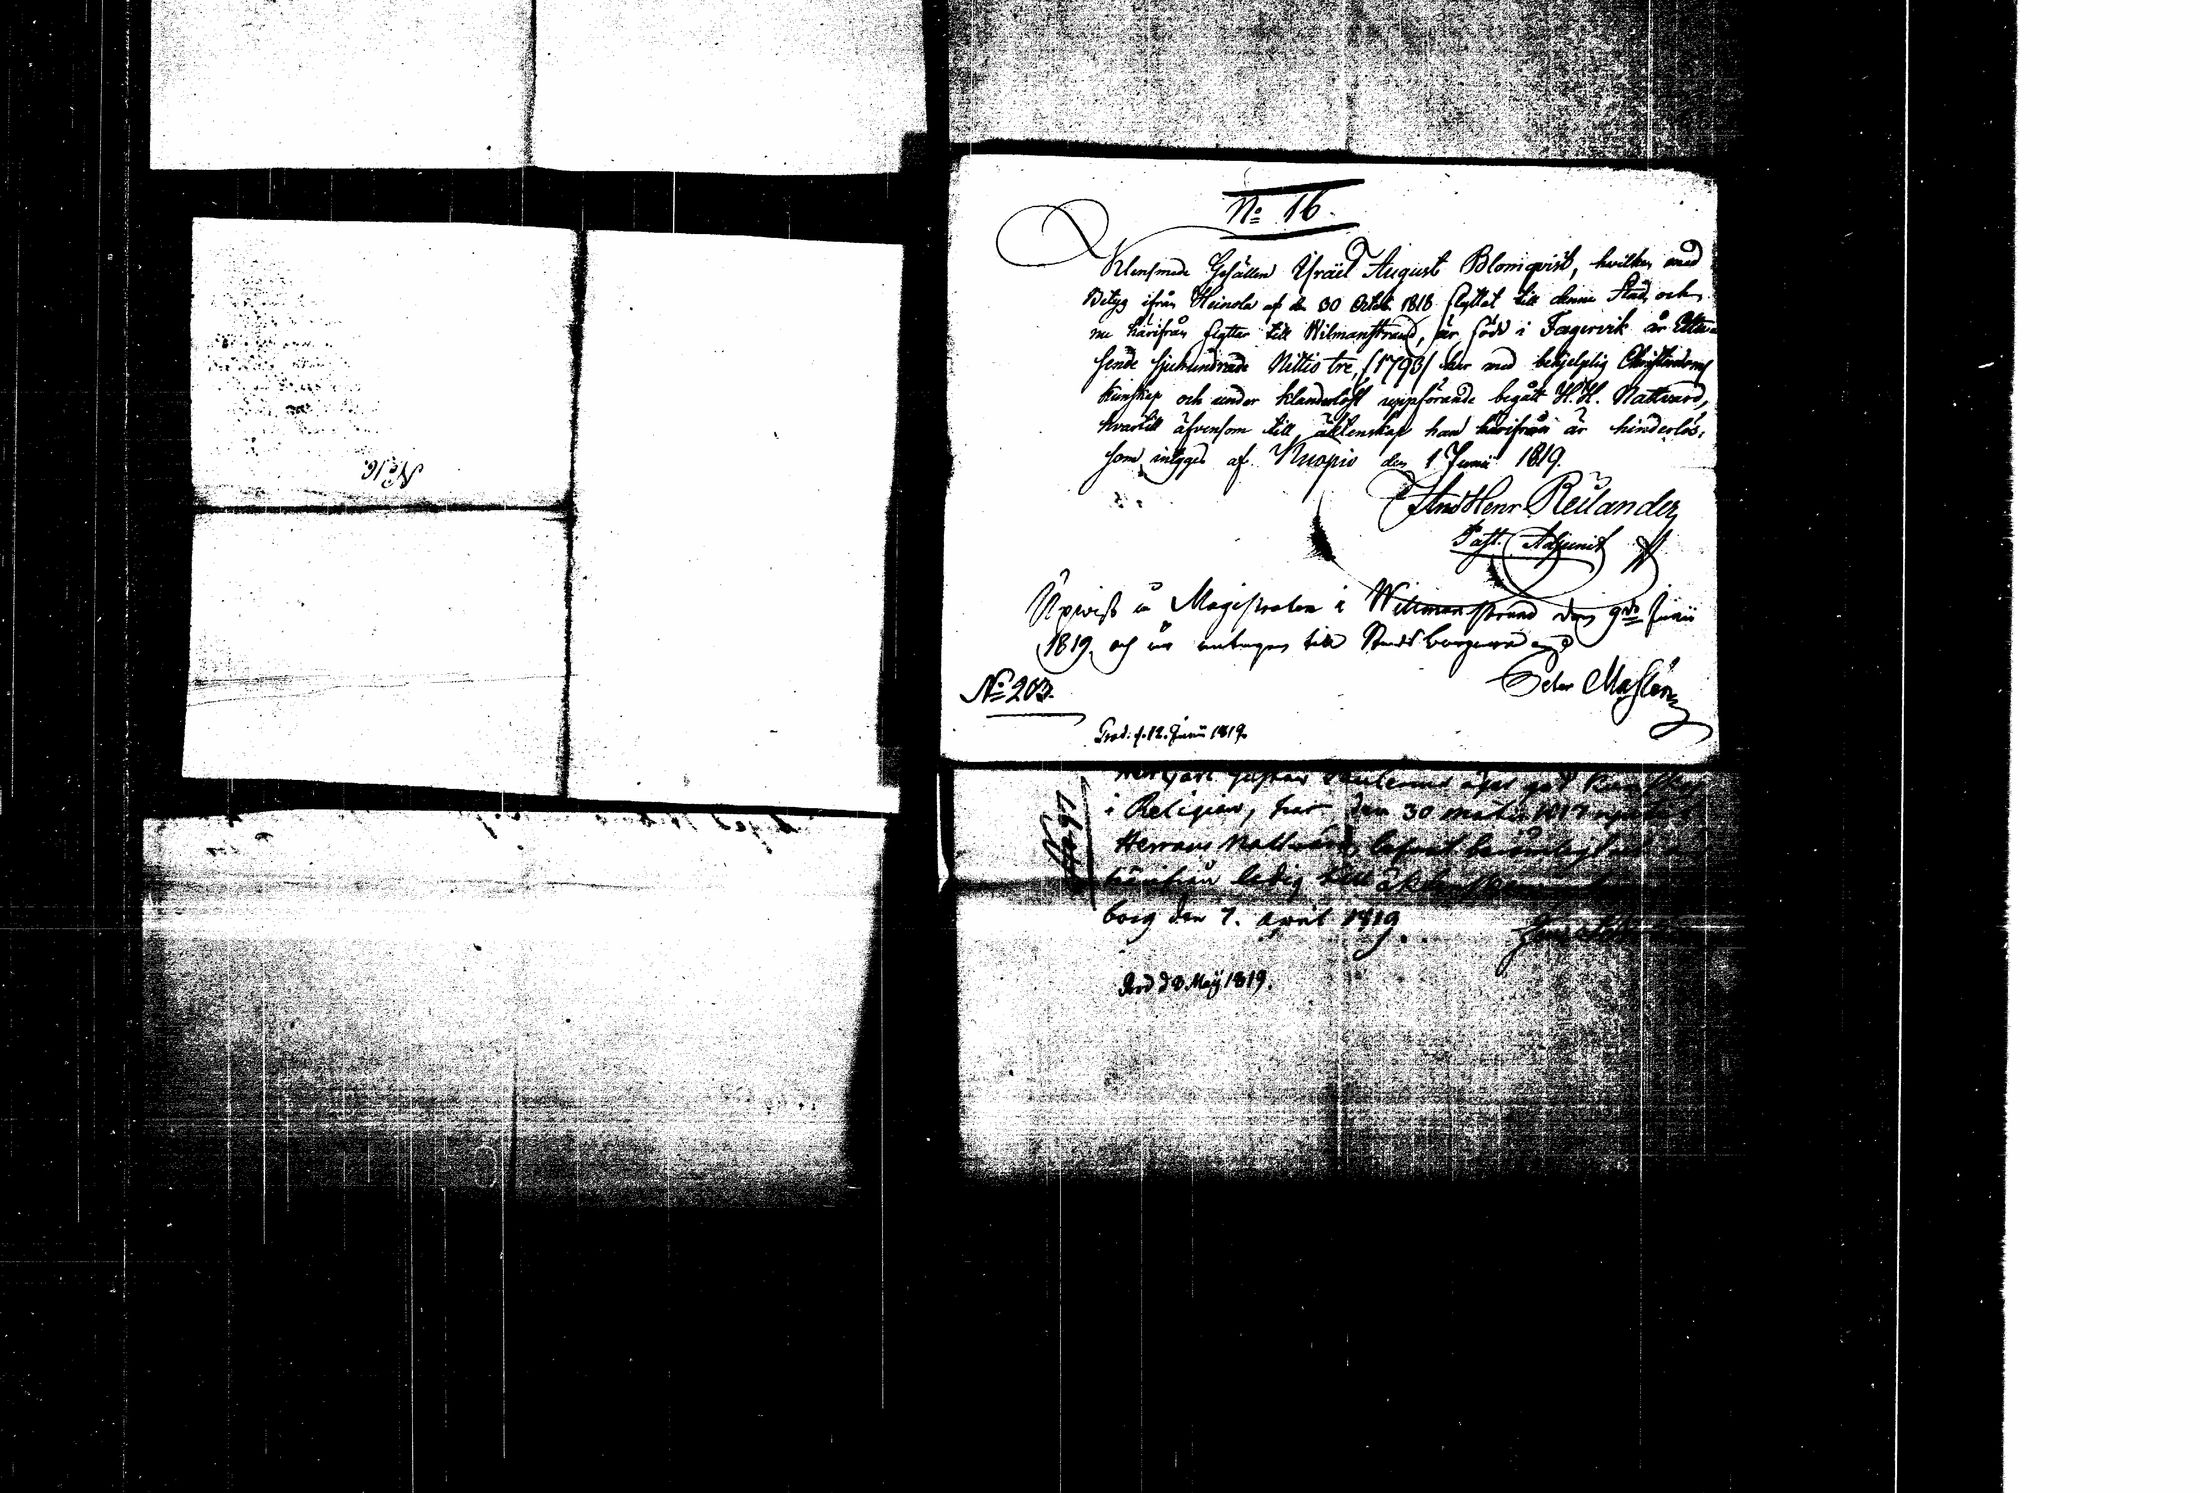 No 16.
Klensmeds Gesällen Israël August Blomqvist, hvilken med
Betyg ifrån Heinola af d. 30 Octob. 1818 flyttat till denne Stad, och
nu härifrån flyttar till Wilmanstrand, är född i Fagervik år Ettu
sende sjuhundrade Nittio tre, /1793/ har med behjelplig Christendoms
kunskap och under klanderlöst uppförande begått H. H. Nattvard,
hvartill äfvensom till äktenskap han härifrån är hinderlös,
som intygas af Kuopio den 1 Junii 1819.
And Henr Reilander
Past. Adjunct
Upvist in Magistraten i Willmanstrand den 9de Junii
1819. och är antagen till Stads borgare
Peter
No 203.
Prod. d. 12. Junii 1819.
No 16.
i Religion, har den 30
Herrans Nattvard,
härifrån ledig till
borg den 7. April 1819.
Prod d 8 Maij 1819.